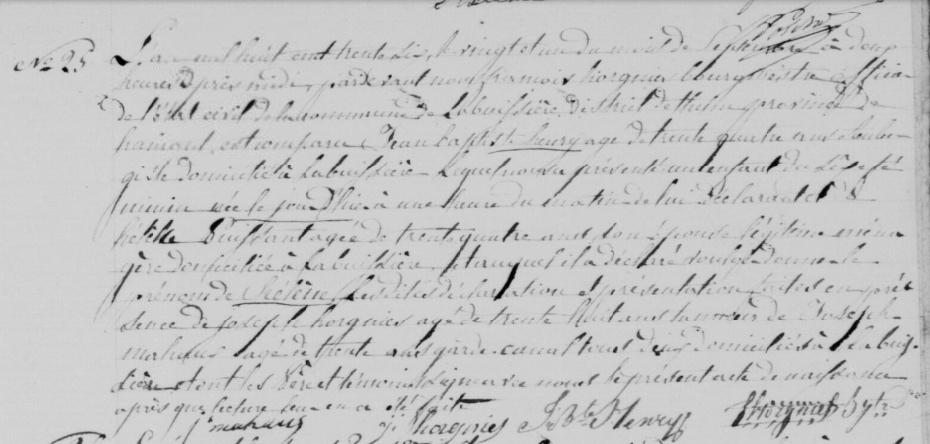 N° 25 L'an mil huit cent trente six, le vingt et un du mois de Septembre à deux
heures d'après midi, pardevant nous françois horgnies bourgmestre officier
de l'état civil de la commune de Labuissière, district de thuin province de
hainaut, est comparu Jean baptiste henry agé de trente quatre ans
domicilié à Labuissière lequel nous a présenté un enfant du Sèxe fé
minin née le jour d'hier à une heure du matin de lui déclarant et
Puissant agée de trente quatre ans son épouse légitime ména
gère domiciliée à Labuissière, et auquel il a déclaré vouloir donner le
prénom de lesdites déclaration et présentation faites en pré
sence de joseph horgnies agé de trente huit ans et de Joseph
mahaux agé de trente ans garde canal tous deux domiciliés à Labuis
sière et ont les père et témoins signé avec nous le présent acte de naissance
après que lecture leur en a été faite
J mahaux J horgnies J Bte Henry horgnies